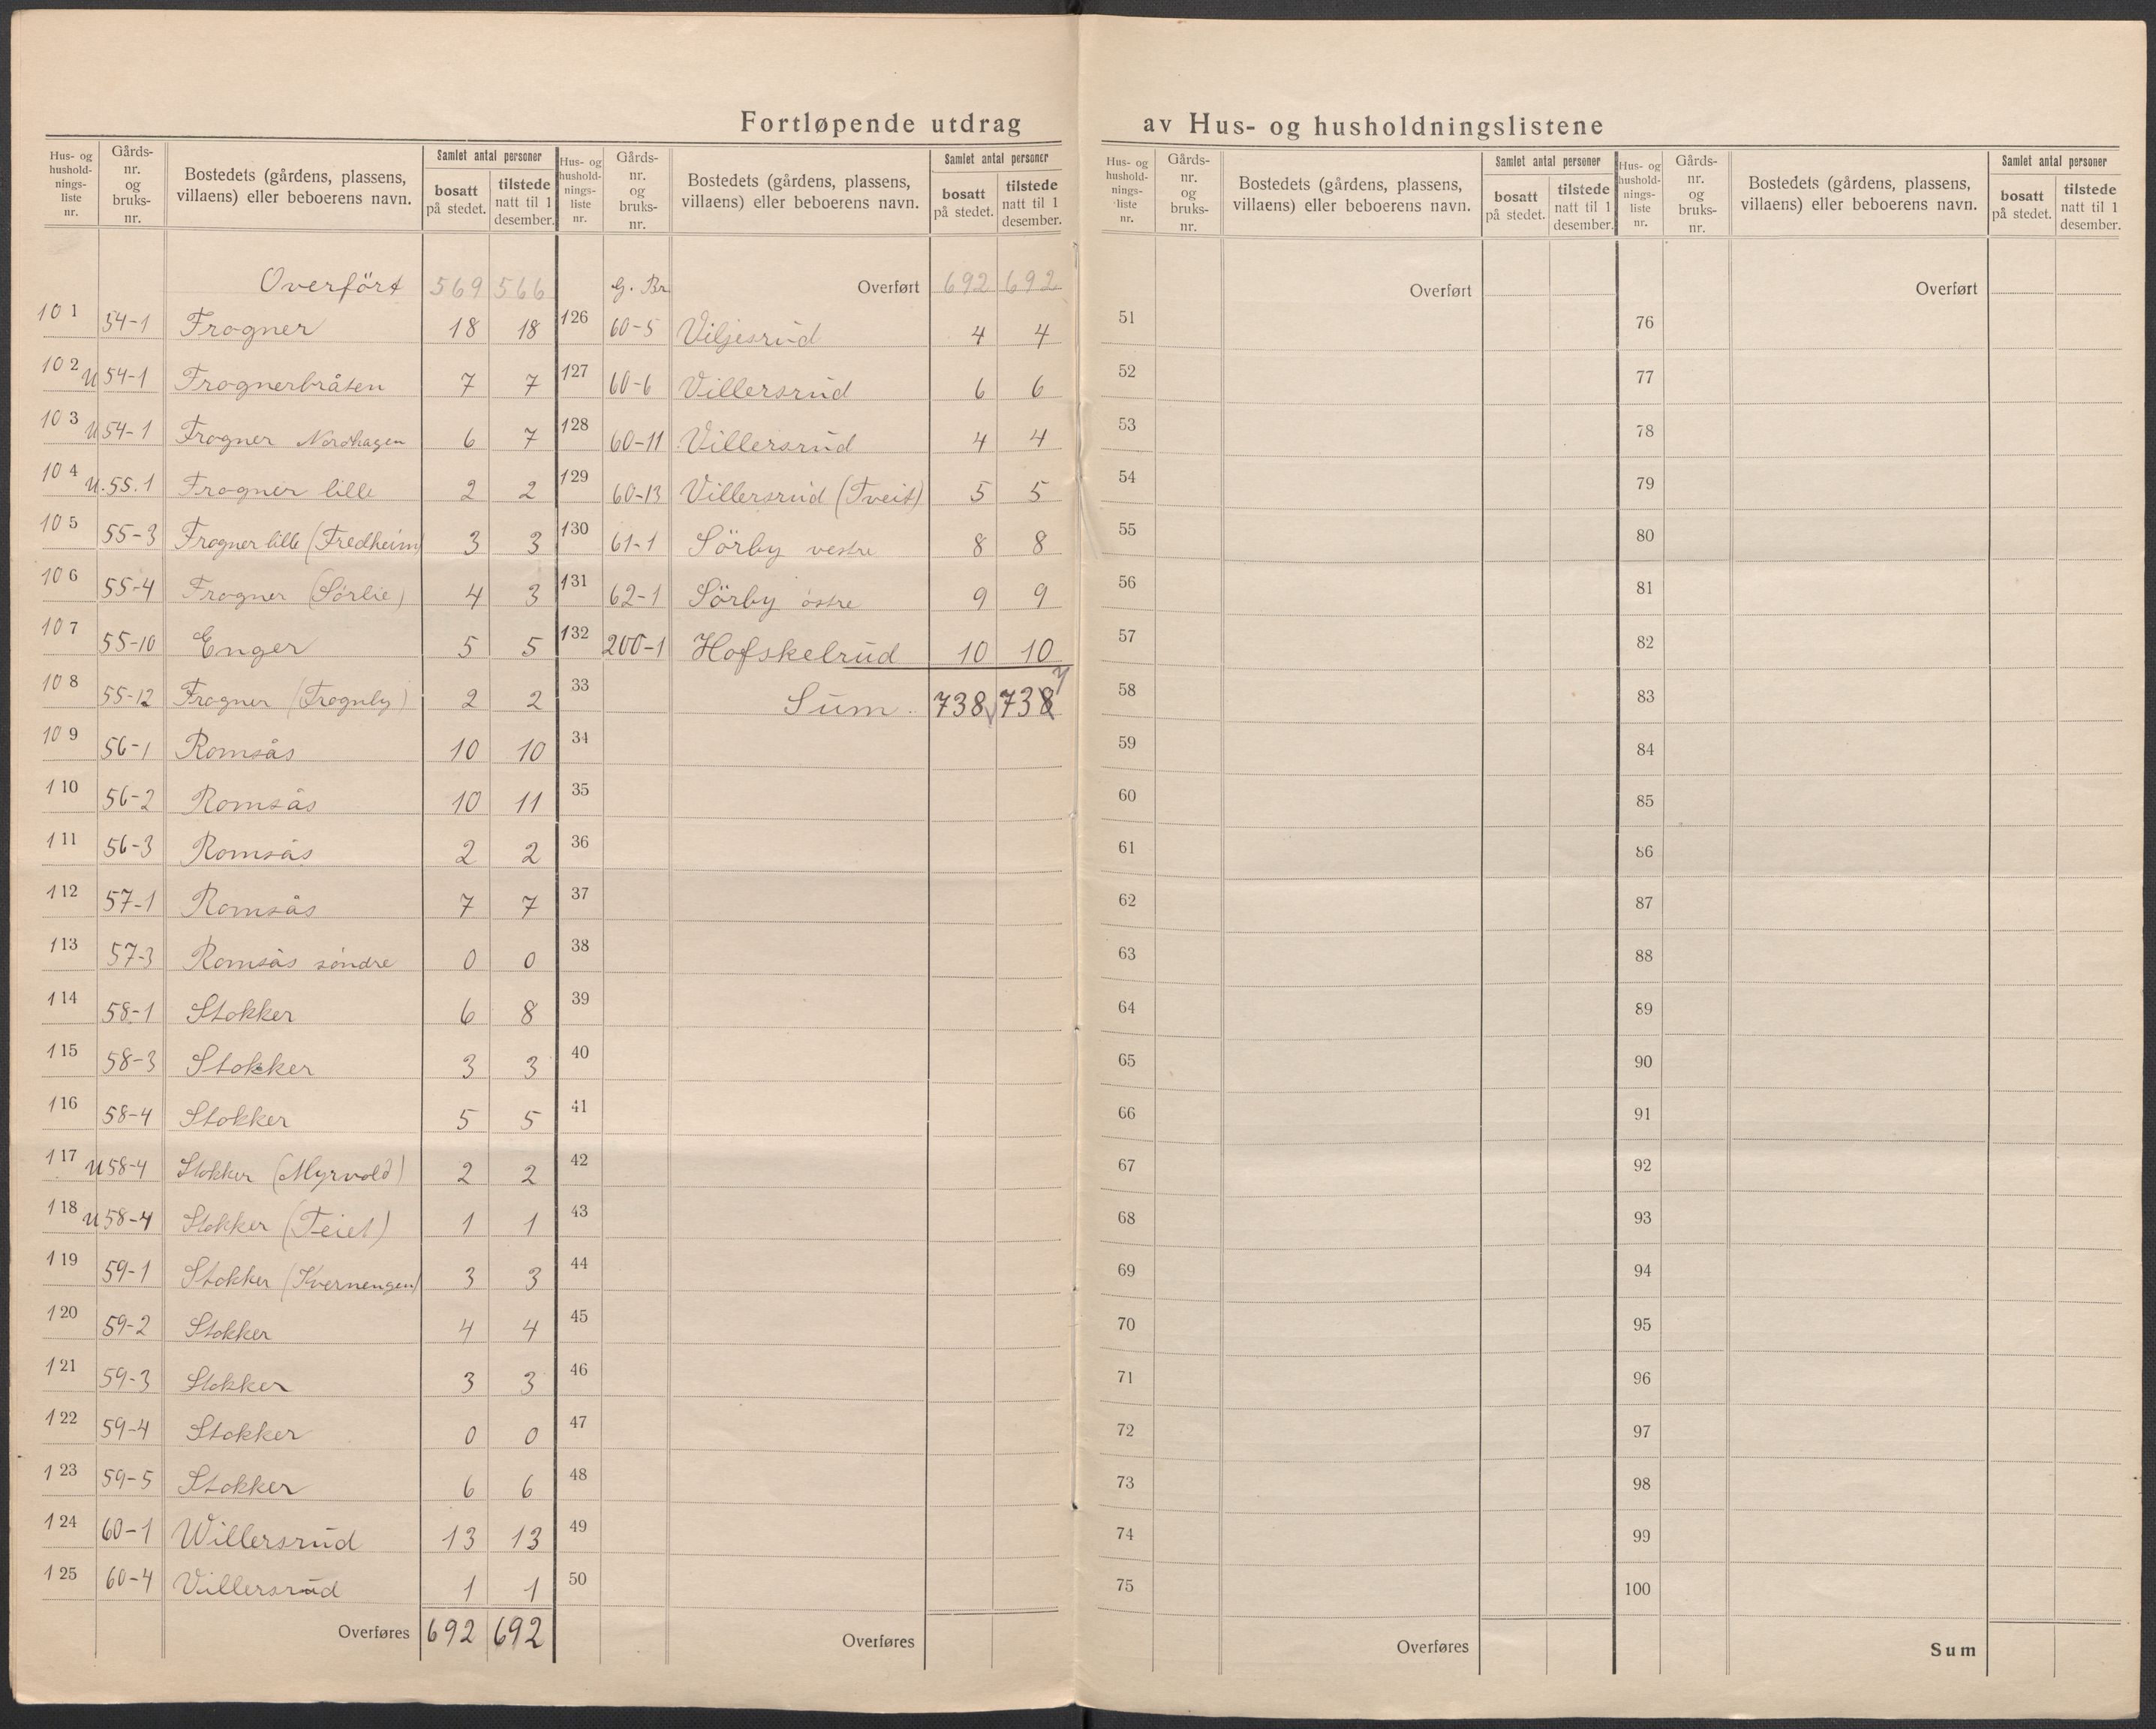 Fortløpende utdrag av Hus- og husholdningslistene
Hus- og husholdnings-liste nr. | Gårds-nr. og bruks-nr. | Bostedets (gårdens, plassens, villaens) eller beboerens navn. | Samlet antal personer: bosatt på stedet. | tilstede natt til 1 desember.
Overført 569 566
101 54-1 Frogner 18 18
102 U 54-1 Frognerbråten 7 7
103 U 54-1 Frogner Nordhagen 6 7
104 U. 55.1 Frogner lille 2 2
105 55-3 Frogner lille (Fredheim) 3 3
106 55-4 Frogner (Sørlie) 4 3
107 55-10 Enger 5 5
108 55-12 Frogner (Frognby) 2 2
109 56-1 Romsås 10 10
110 56-2 Romsås 10 11
111 56-3 Romsås 2 2
112 57-1 Romsås 7 7
113 57-3 Romsås söndre 0 0
114 58-1 Stokker 6 8
115 58-3 Stokker 3 3
116 58-4 Stokker 5 5
117 U 58-4 Stokker (Myrvold) 2 2
118 U 58-4 Stokker (Teiet) 1 1
119 59-1 Stokker (Kvernengen) 3 3
120 59-2 Stokker 4 4
121 59-3 Stokker 3 3
122 59-4 Stokker 0 0
123 59-5 Stokker 6 6
124 60-1 Willersrud 13 13
125 60-4 Villersrud 1 1
Overføres 692 692
Hus- og husholdnings-liste nr. | Gårds-nr. og bruks-nr. | Bostedets (gårdens, plassens, villaens) eller beboerens navn. | Samlet antal personer: bosatt på stedet. | tilstede natt til 1 desember.
G. Br. Overført 692 692
126 60-5 Viljesrud 4 4
127 60-6 Villersrud 6 6
128 60-11 Villersrud 4 4
129 60-13 Villersrud (Tveit) 5 5
130 61-1 Sörby vestre 8 8
131 62-1 Sörby östre 9 9
132 200-1 Hofskelrud 10 10
33 Sum. 738 738 7
34
35
36
37
38
39
40
41
42
43
44
45
46
47
48
49
50
Overføres
Hus- og husholdnings-liste nr. | Gårds-nr. og bruks-nr. | Bostedets (gårdens, plassens, villaens) eller beboerens navn. | Samlet antal personer: bosatt på stedet. | tilstede natt til 1 desember.
Overført
51
52
53
54
55
56
57
58
59
60
61
62
63
64
65
66
67
68
69
70
71
72
73
74
75
Overføres
Hus- og husholdnings-liste nr. | Gårds-nr. og bruks-nr. | Bostedets (gårdens, plassens, villaens) eller beboerens navn. | Samlet antal personer: bosatt på stedet. | tilstede natt til 1 desember.
Overført
76
77
78
79
80
81
82
83
84
85
86
87
88
89
90
91
92
93
94
95
96
97
98
99
100
Sum